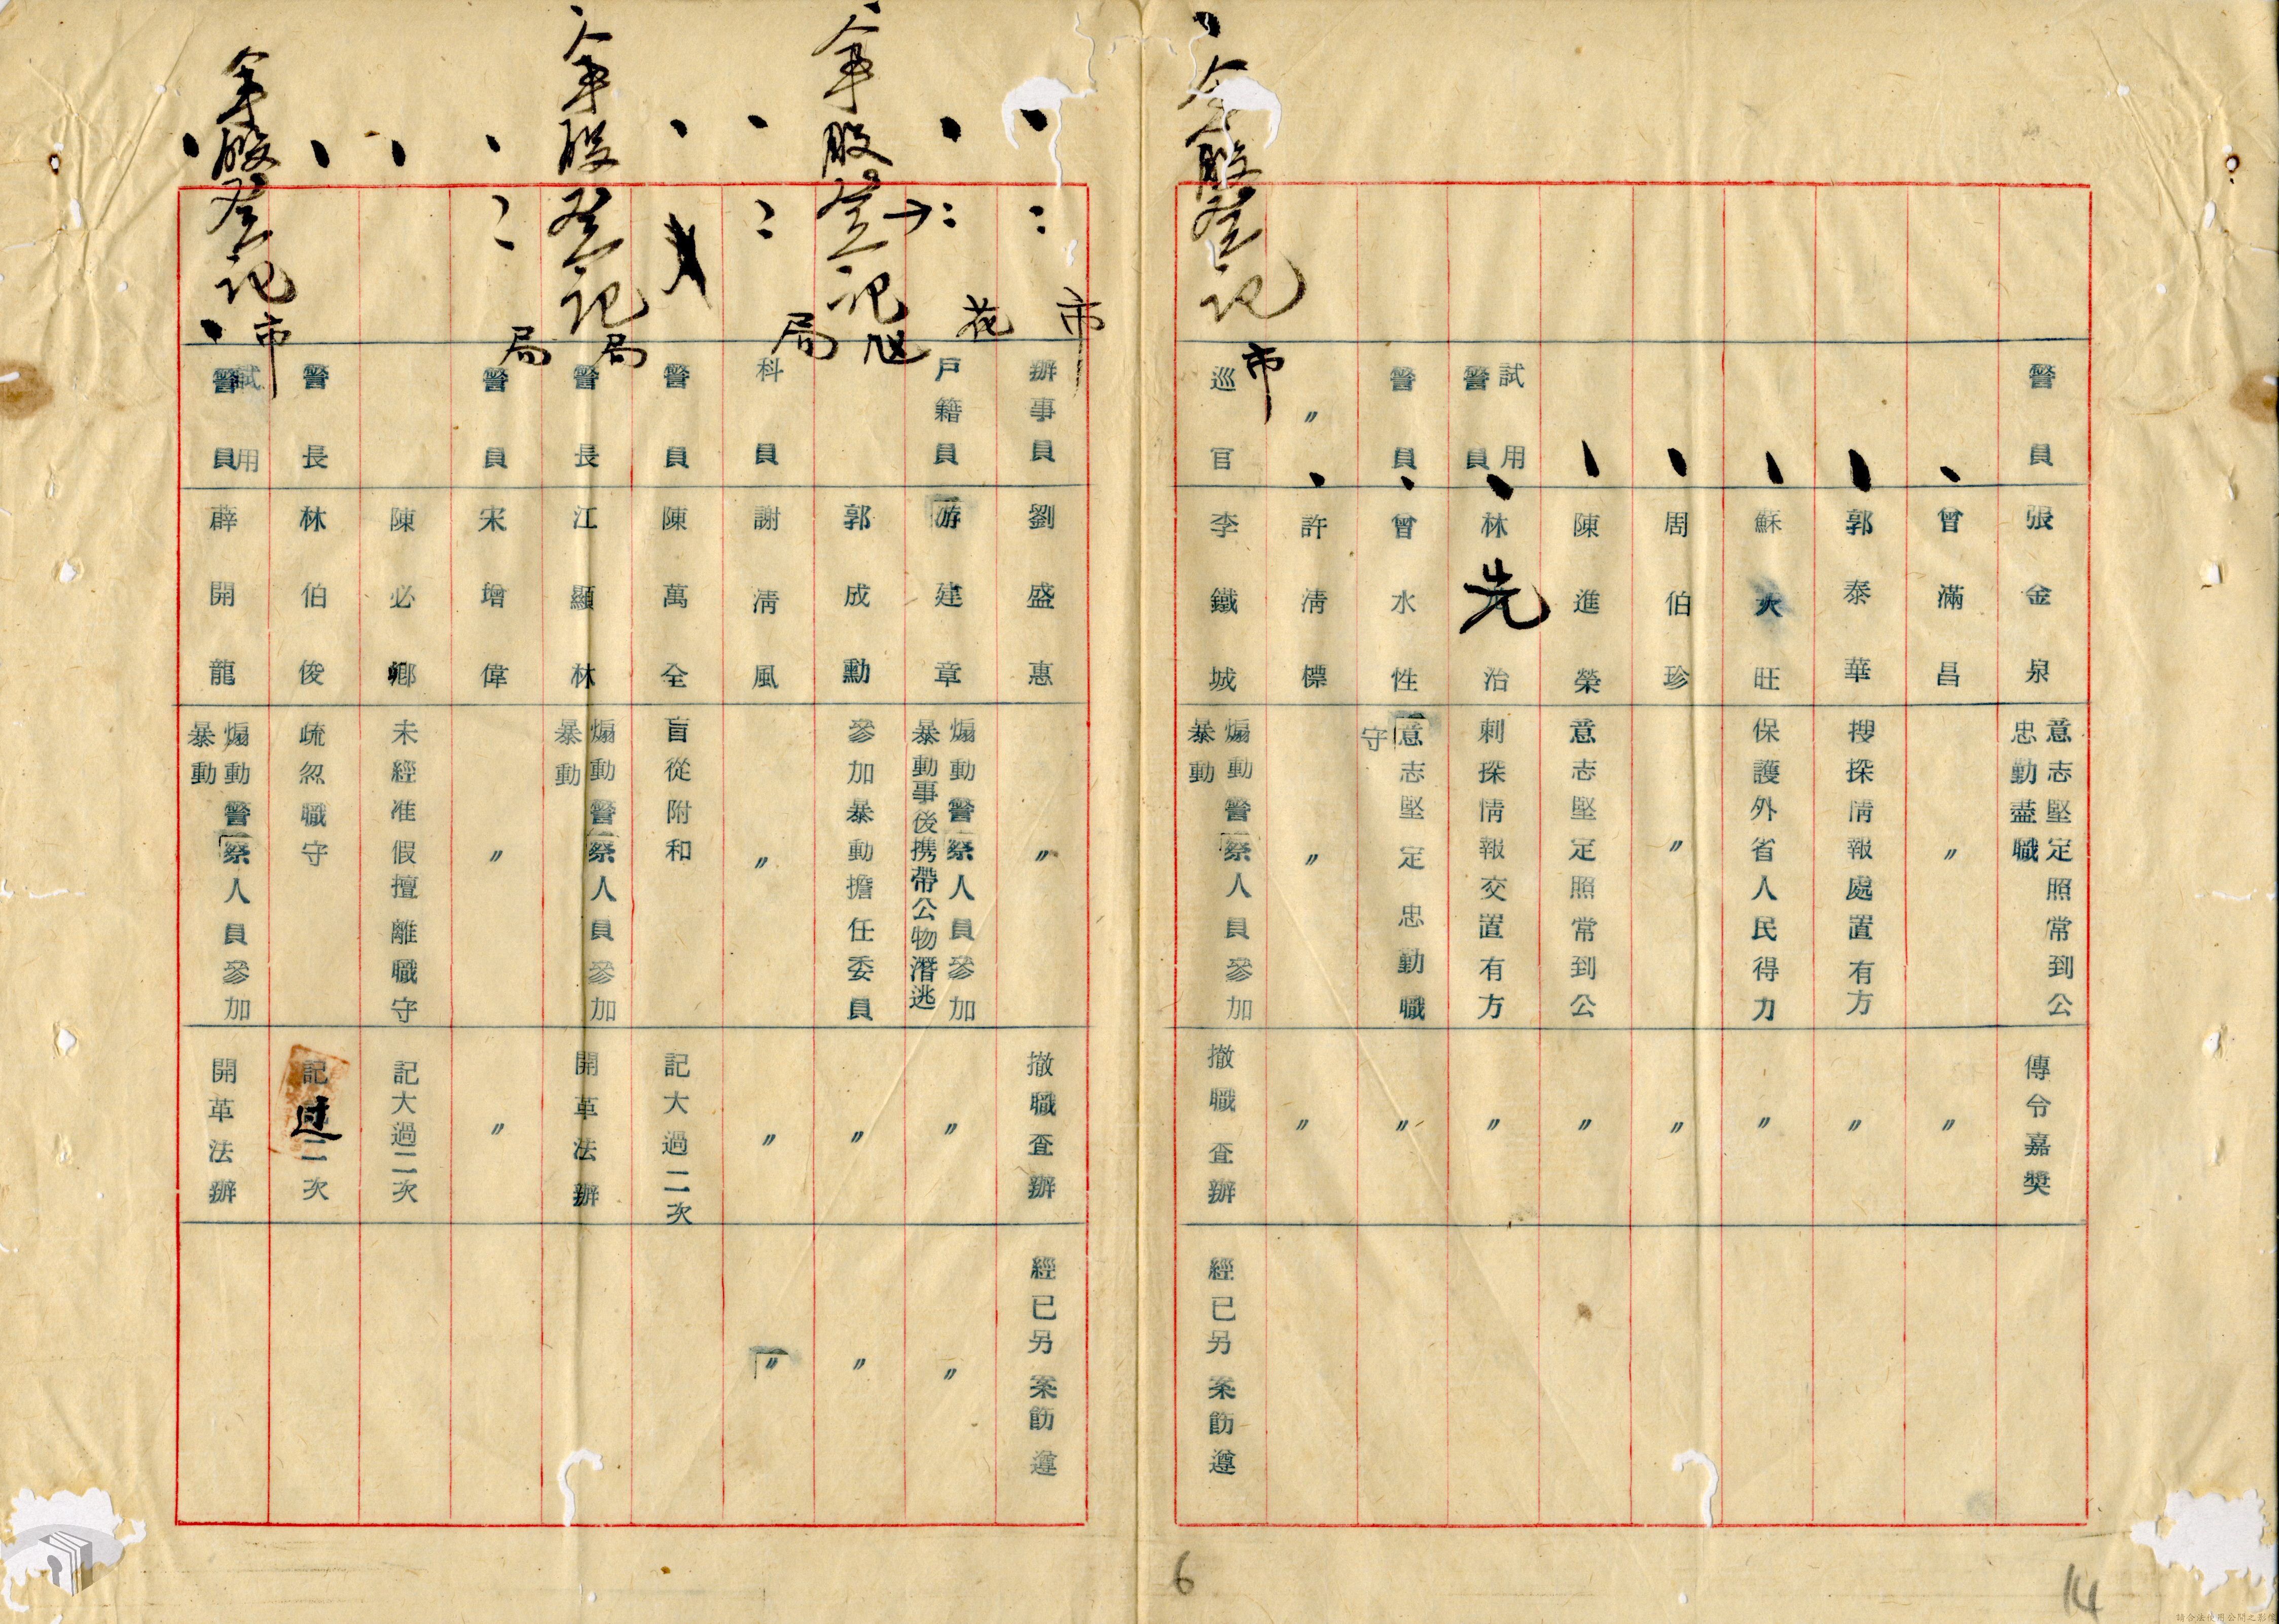 警員 張金泉 意志堅定照常到公忠勤盡職 傳令嘉獎
曾滿昌 〃 〃
郭泰華 搜探情報處置有方 〃
蘇火旺 保護外省人民得力 〃
周伯珍 〃 〃
陳進榮 意志堅定照常到公 〃
試用警員 林先治 刺探情報交置有方 〃
警員 曾水性 意志堅定忠勤職守 〃
〃 許清標 〃 〃
登記
市
巡官 李鐵城 煽動警察人員參加暴動 撤職查辦 經已另案飭遵
市
辦事員 劉盛惠 〃 撤職查辦 經已另案飭遵
花
戶籍員 游建章 煽動警察人員參加暴動事後携帶公物潛逃 〃 〃
登記
郭成勳 參加暴動擔任委員 〃 〃
局
科員 謝清風 〃 〃 〃
警員 陳萬全 盲從附和 記大過二次
登記
局
警長 江顯林 煽動警察人員參加暴動 開革法辦
局
警員 宋增偉 〃 〃
陳必鄉 未經准假擅離職守 記大過二次
警長 林伯俊 疏忽職守 記过二次
登記
市
試用警員 薛開龍 煽動警察人員參加暴動 開革法辦
6
14
請合法使用公開之影像